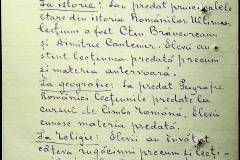 La istorie: S-au predat principalele
etape din istoria Românilor. Ultima
lecțiune a fost Ctin Brancoveanu
și Dimitrie Cantemir. Elevii au
știut lecțiunea predată precum
și materia anterioară.
La geografie: S-a predat Geografia
României lecțiunile predate la
cursul de limba română. Elevii
cunosc materia predată.
La religie: Elevii au învățat
câteva rugăciuni precum și lecți-